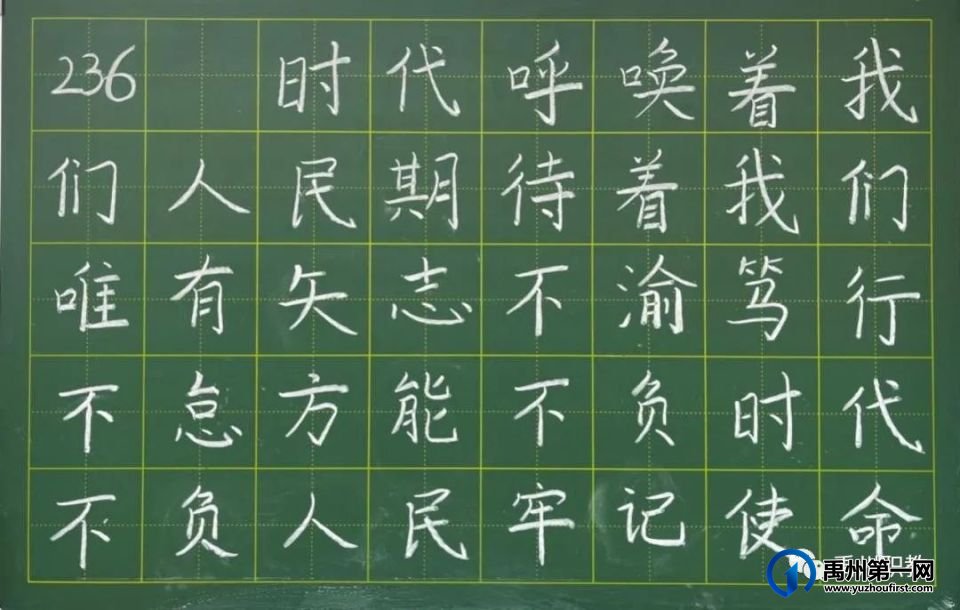 236 时代呼唤着我
们人民期待着我们
唯有矢志不渝笃行
不怠方能不负时代
不负人民牢记使命
禹州第一网
www.yuzhoufirst.com